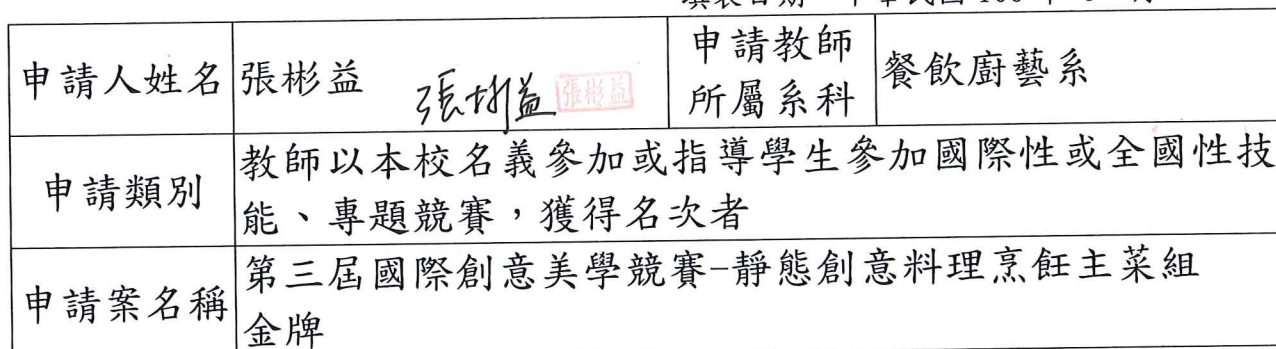 申請人姓名 張彬益 張彬益 張彬益 申請教師所屬系科 餐飲廚藝系
申請類別 教師以本校名義參加或指導學生參加國際性或全國性技
能、專題競賽，獲得名次者
申請案名稱 第三屆國際創意美學競賽-靜態創意料理烹飪主菜組
金牌